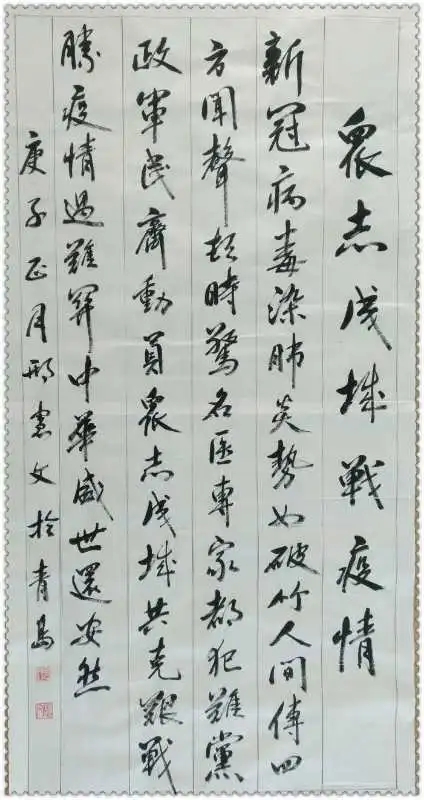 衆志成城戰疫情
新冠病毒染肺炎勢如破竹人間傳四
方聞聲頓時驚名医專家都犯難黨
政軍民齊動員衆志成城共克艱戰
勝疫情過難関中華盛世還安然
庚子正月邢憲文於青島